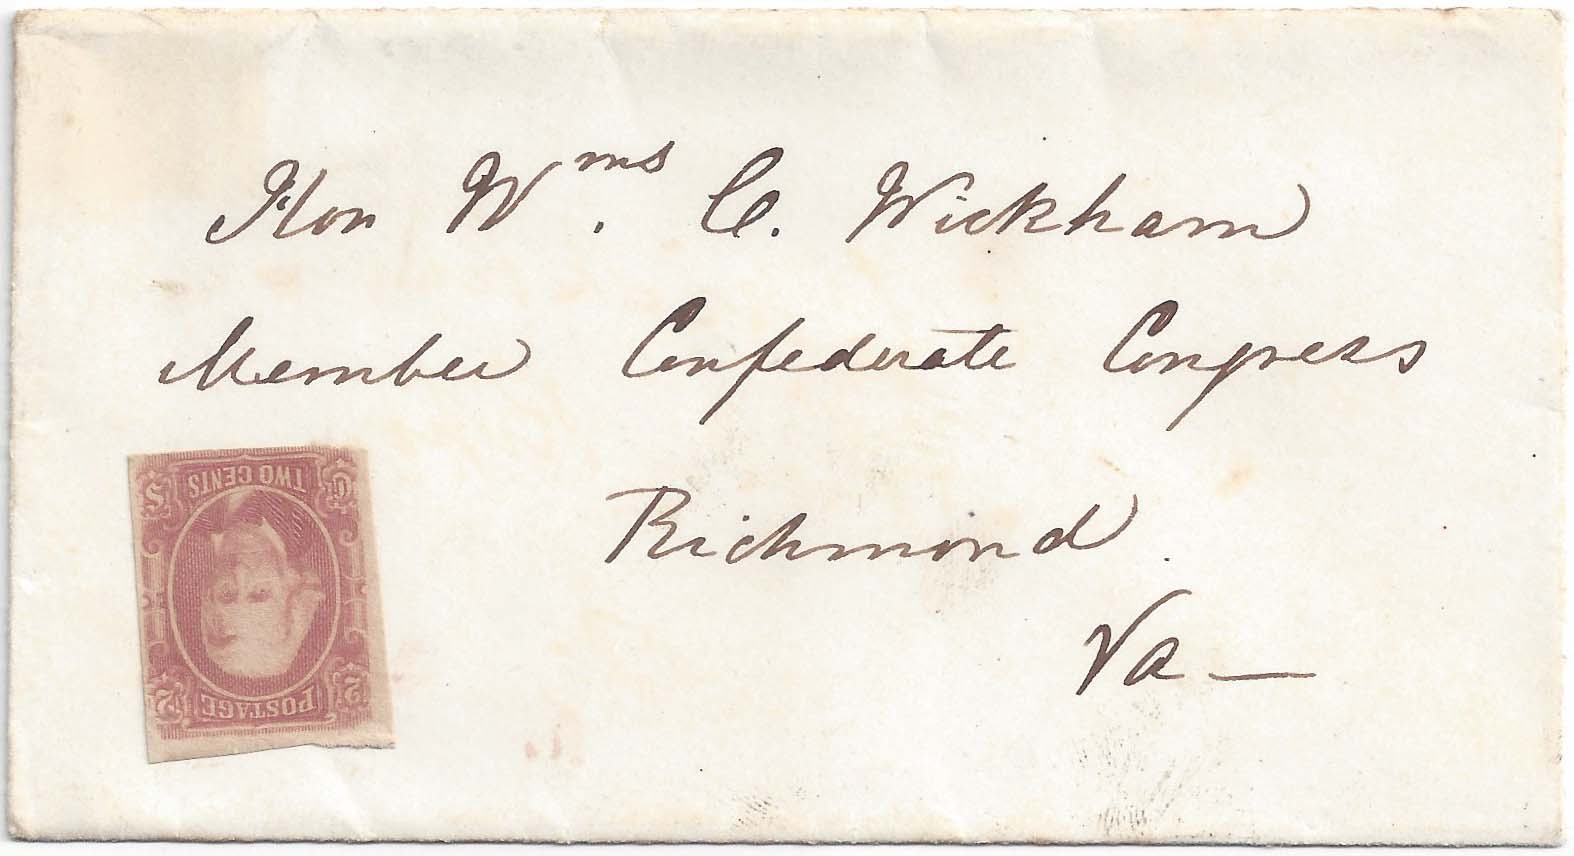 Hon Wms. C. Wickham
Member Confederate Congress
Richmond.
Va —
C S
TWO CENTS
POSTAGE
2 2